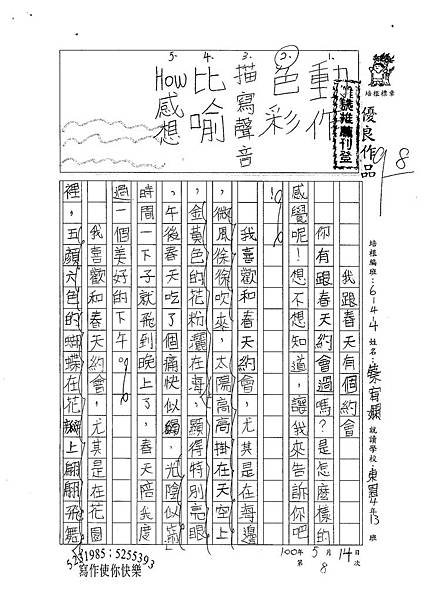 培根標章
優良作品
98
1. 動作
2. 色彩
3. 描寫聲音
4. 比喻
5. How感想
培根編班:6-4-4 姓名: 就讀學校: 4年13班
100年5月14日
第8次
我跟春天有個約會
你有跟春天約會過嗎?是怎麼樣的
感覺呢!想不想知道,讓我來告訴你吧
!
我喜歡和春天約會,尤其是在海邊
,微風徐徐吹來,太陽高高掛在天空上
,金黃色的花粉灑在海,顯得特別亮眼
,午後春天吃了個痛快似,光陰似箭
時間一下子就飛到晚上了,春天陪我度
過一個美好的下午。
我喜歡和春天約會,尤其是在花園
裡,五顏六色的蝴蝶在花瓣上翩翩飛舞
5231985;5255393
寫作使你快樂